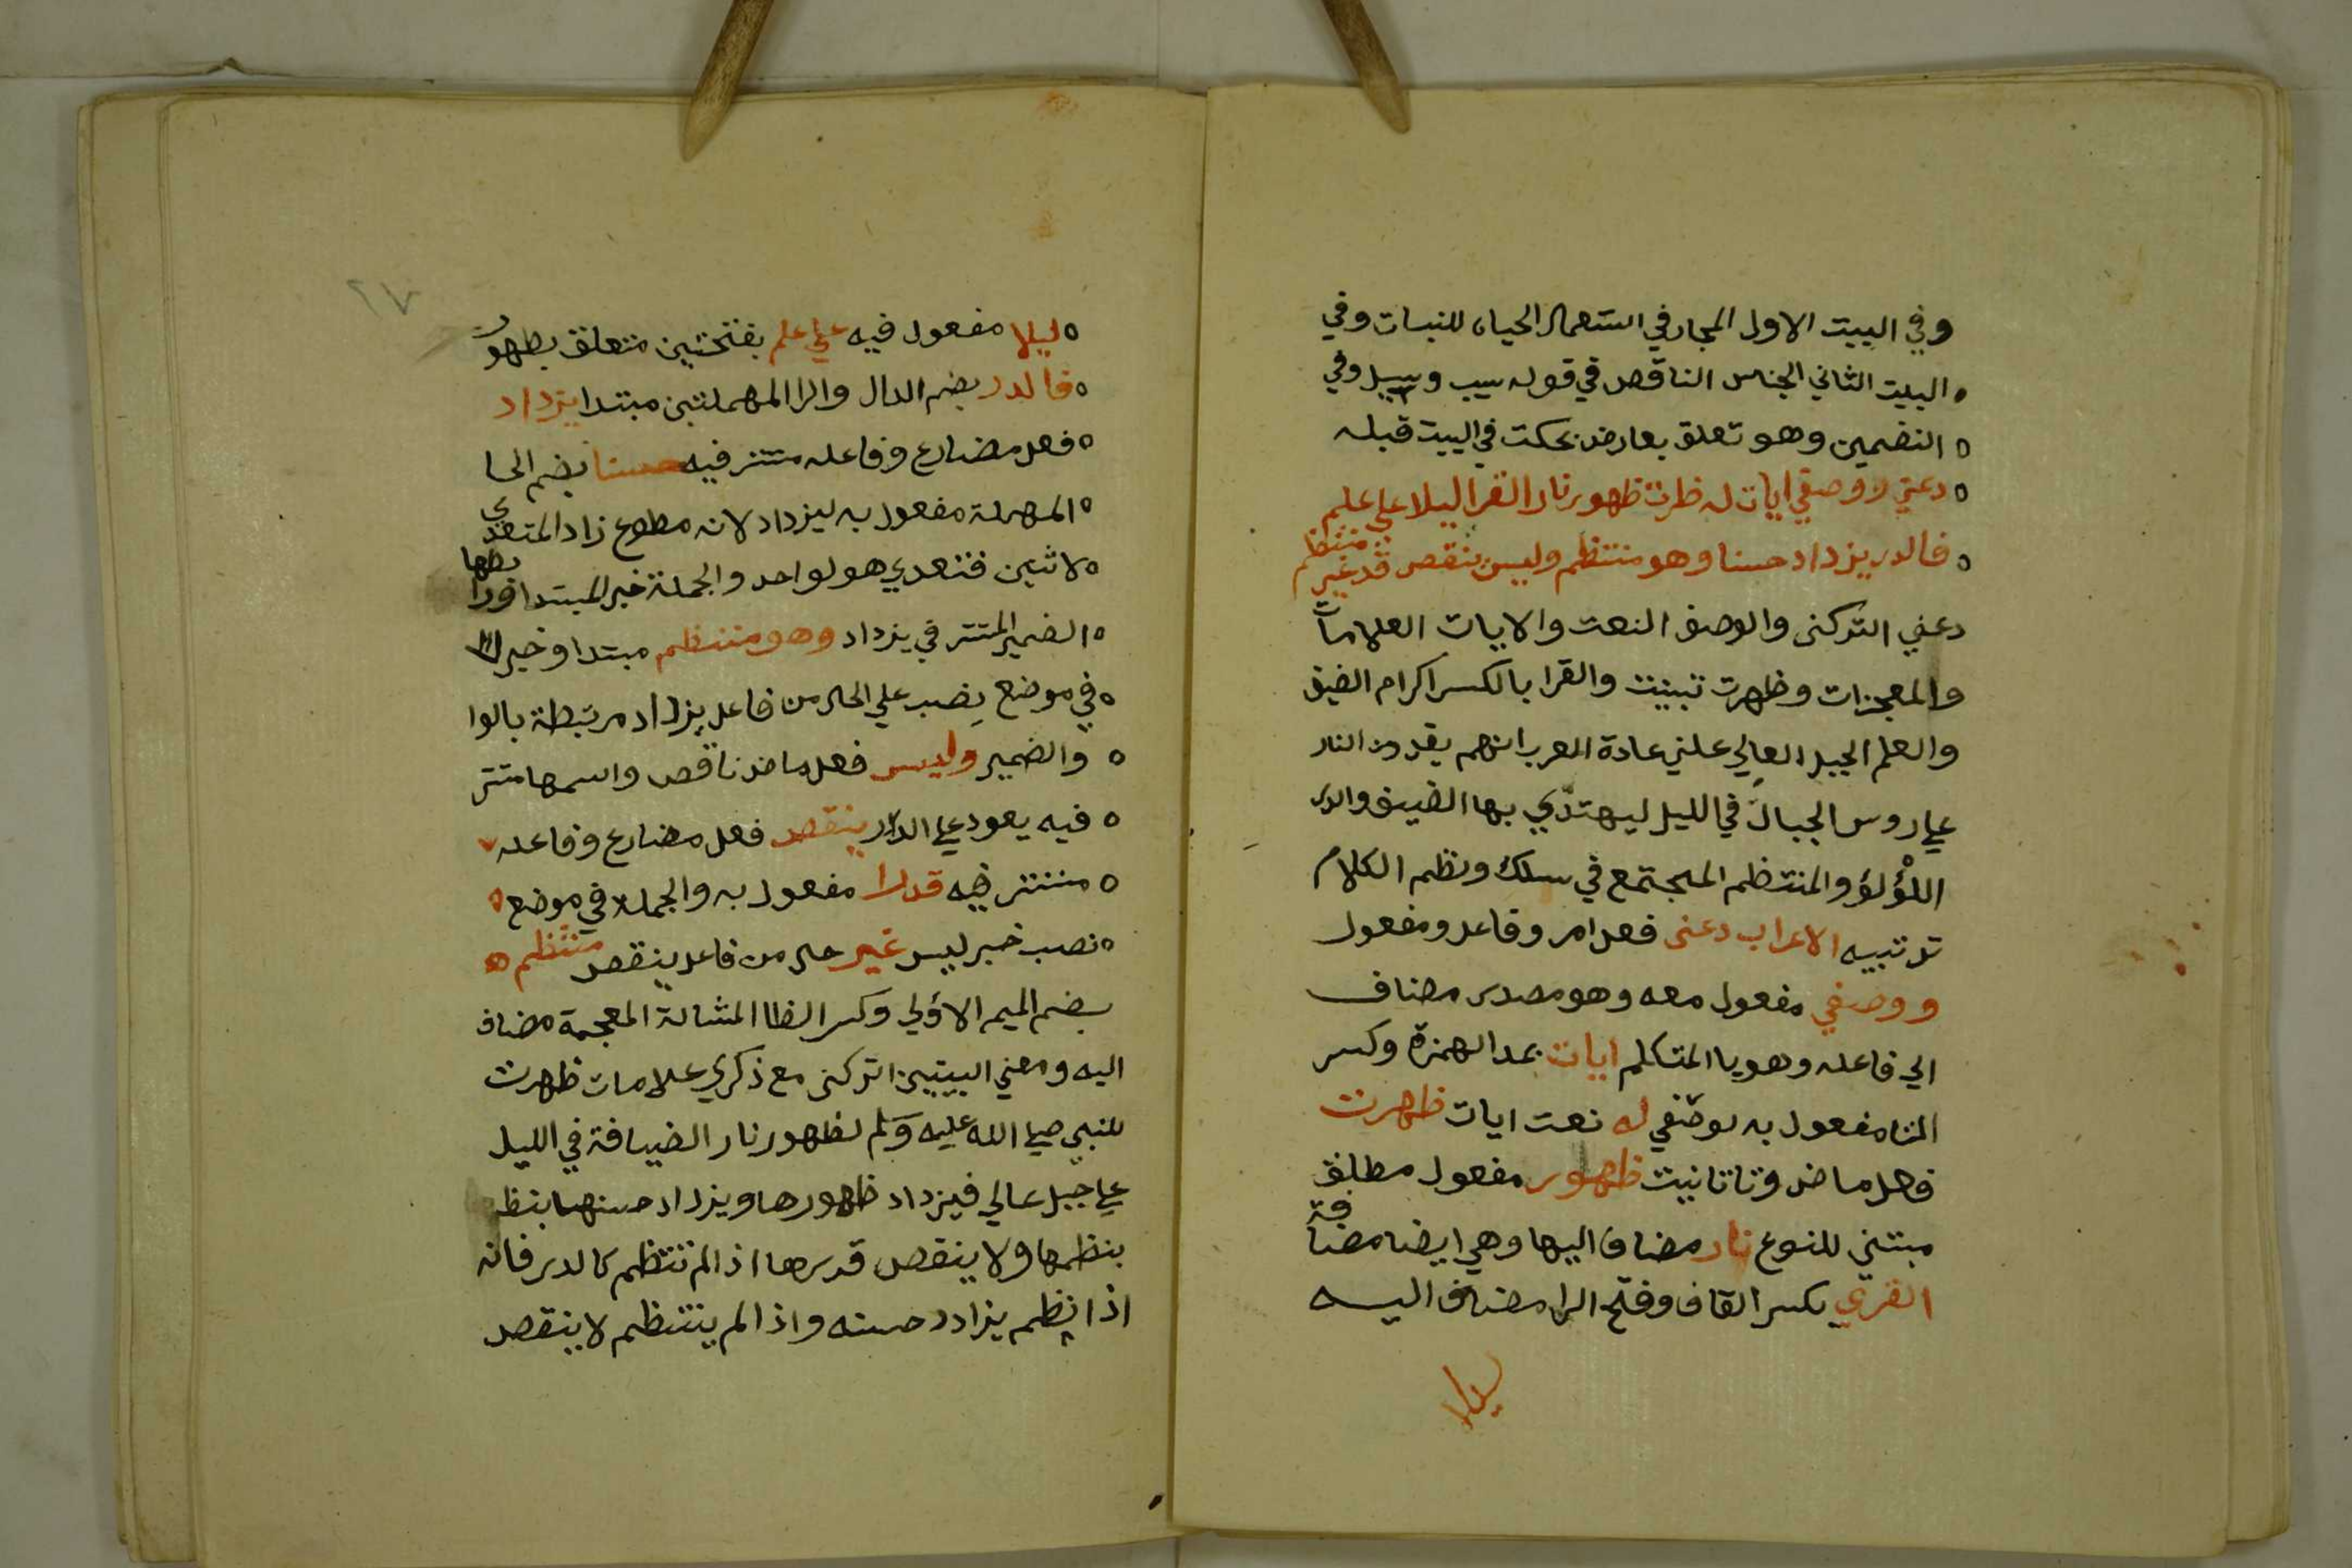 وفي البيت الاول المجاز في استعمال الحياه للنبات وفي
البيت الثاني الجناس الناقص في قوله سيب وسيل وفي
التضمين وهو تعلق بعارض بحكت في البيت قبله
دعني ووصفي ايات له ظهرت ظهور نار القرا ليلا علي علم
فالدر يزداد حسنا وهو منتظم وليس ينقص قدرا غير منتظم
دعني اتركني والوصف النعت والايات العلامات
والمعجزات وظهرت تبينت والقرا بالكسر اكرام الضيف
والعلم الجبل العالي علي عادة العرب انهم يقدون النار
علي روس الجبال في الليل ليهتدي بها الضيف والدر
اللؤلؤ والمنتظم المجتمع في سلك ونظم الكلام
ترتيبه الاعراب دعني فعل امر وفاعل ومفعول
ووصفي مفعول معه وهو مصدر مضاف
الي فاعله وهو يا المتكلم ايات بمد الهمزة وكسر
التا مفعول به لوصفي له نعت ايات ظهرت
فعل ماض وتا تانيث ظهور مفعول مطلق
مبنني للنوع نار مضاف اليها وهي ايضا مضافة
القري بكسر القاف وفتح الرا مضاف اليه
ليلا
٢٧
ليلا مفعول فيه علي علم بفتحتين متعلق بظهور
فالدر بضم الدال والرا المهملتين مبتدا يزداد
فعل مضارع وفاعله مستتر فيه حسنا بضم الحا
المهملة مفعول به ليزداد لانه مطوع زاد المتعدي
لاثنين فتعدي هو لواحد والجملة خبر المبتدا ورابطها
الضمير المستتر في يزداد وهو منتظم مبتدا وخبر
في موضع نصب علي الحال من فاعل يزداد مرتبطة بالوا
والضمير وليس فعل ماض ناقص واسمها مستتر
فيه يعود علي الدر ينقص فعل مضارع وفاعله
مستتر فيه قدرا مفعول به والجملة في موضع
نصب خبر ليس غير حال من فاعل ينقص منتظم
بضم الميم الاولي وكسر الظا المشالة المعجمة مضاف
اليه ومعني البيتين اتركني مع ذكري علامات ظهرت
للنبي صلي الله عليه وسلم لظهور نار الضيافة في الليل
علي جبل عالي فيزداد ظهورها ويزداد حسنها بنظ
بنظمها ولا ينقص قدرها اذا لم تنتظم كالدر فانه
اذا نظم يزداد حسنه واذا لم ينتظم لا ينقص